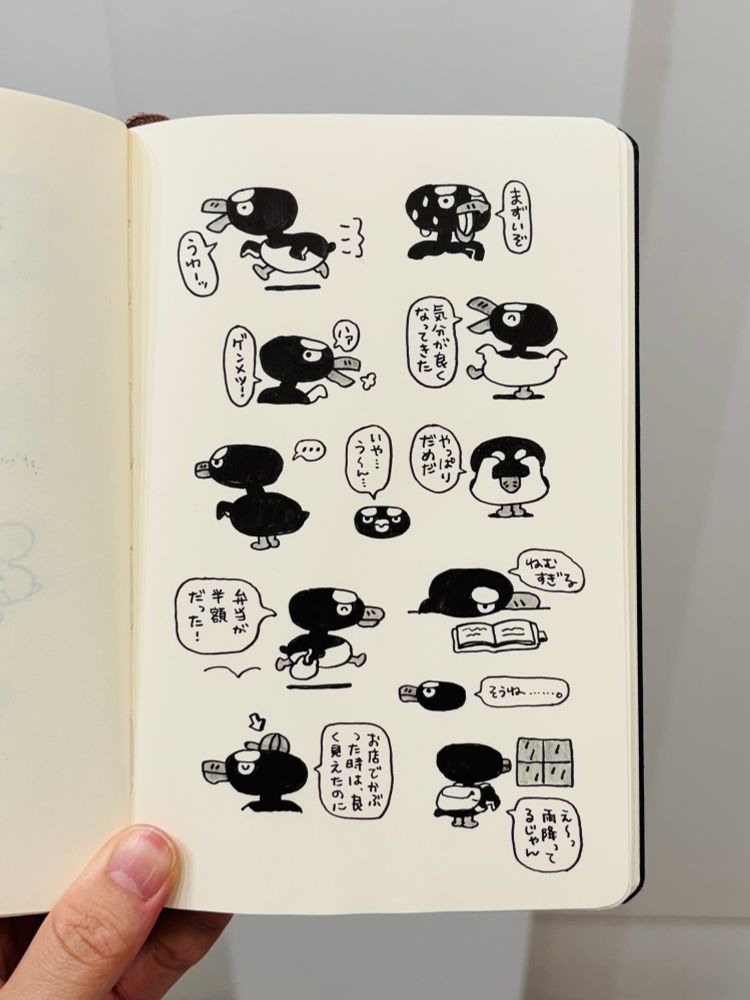 うわーッ
まずいぞ
ハァ
ゲンメツ!
気分が良く
なってきた
…
いや…
う〜ん…
やっぱり
だめだ
弁当が
半額
だった!
ねむ
すぎる
そうね………。
お店でかぶ
った時は、良
く見えたのに
え〜っ
雨降って
るじゃん